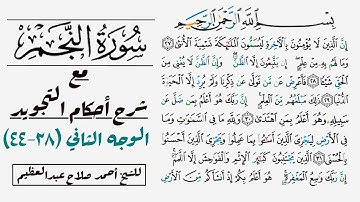 بِسْمِ اللَّهِ الرَّحْمَٰنِ الرَّحِيمِ
إِنَّ الَّذِينَ لَا يُؤْمِنُونَ بِالْآخِرَةِ لَيُسَمُّونَ الْمَلَائِكَةَ تَسْمِيَةَ الْأُنثَىٰ ٢٧
وَمَا لَهُم بِهِ مِنْ عِلْمٍ إِن يَتَّبِعُونَ إِلَّا الظَّنَّ وَإِنَّ الظَّنَّ لَا يُغْنِي مِنَ
الْحَقِّ شَيْئًا ٢٨ فَأَعْرِضْ عَن مَّن تَوَلَّىٰ عَن ذِكْرِنَا وَلَمْ يُرِدْ إِلَّا الْحَيَاةَ
الدُّنْيَا ٢٩ ذَٰلِكَ مَبْلَغُهُم مِّنَ الْعِلْمِ إِنَّ رَبَّكَ هُوَ أَعْلَمُ بِمَن ضَلَّ عَن
سَبِيلِهِ وَهُوَ أَعْلَمُ بِمَنِ اهْتَدَىٰ ٣٠ وَلِلَّهِ مَا فِي السَّمَاوَاتِ وَمَا
فِي الْأَرْضِ لِيَجْزِيَ الَّذِينَ أَسَاءُوا بِمَا عَمِلُوا وَيَجْزِيَ الَّذِينَ أَحْسَنُوا
بِالْحُسْنَى ٣١ الَّذِينَ يَجْتَنِبُونَ كَبَائِرَ الْإِثْمِ وَالْفَوَاحِشَ إِلَّا اللَّمَمَ
إِنَّ رَبَّكَ وَاسِعُ الْمَغْفِرَةِ هُوَ أَعْلَمُ بِكُمْ إِذْ أَنشَأَكُم مِّنَ الْأَرْضِ
سُورَةُ النَّجْمِ
مع
شرح أحكام التجويد
الوجه الثاني (٢٨-٤٤)
للشيخ أحمد صلاح عبدالعظيم